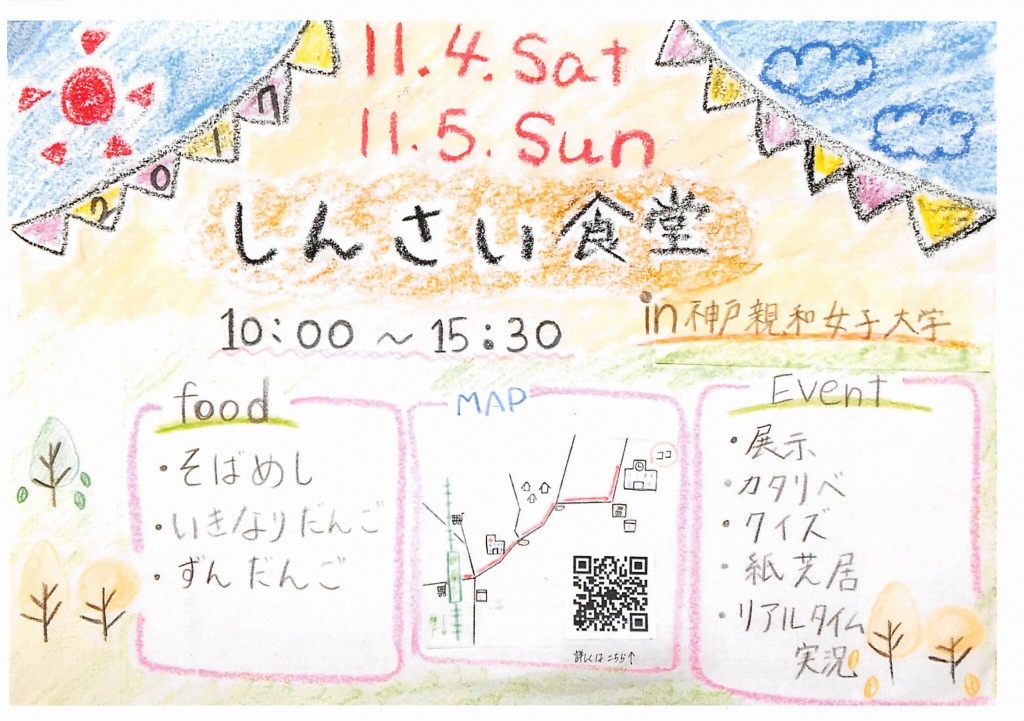 11.4.Sat
11.5.Sun
2017
しんさい食堂
10:00 ～ 15:30
in神戸親和女子大学
food
・そばめし
・いきなりだんご
・ずんだんご
MAP
ココ
詳しくはこちら↑
Event
・展示
・カタリベ
・クイズ
・紙芝居
・リアルタイム
実況